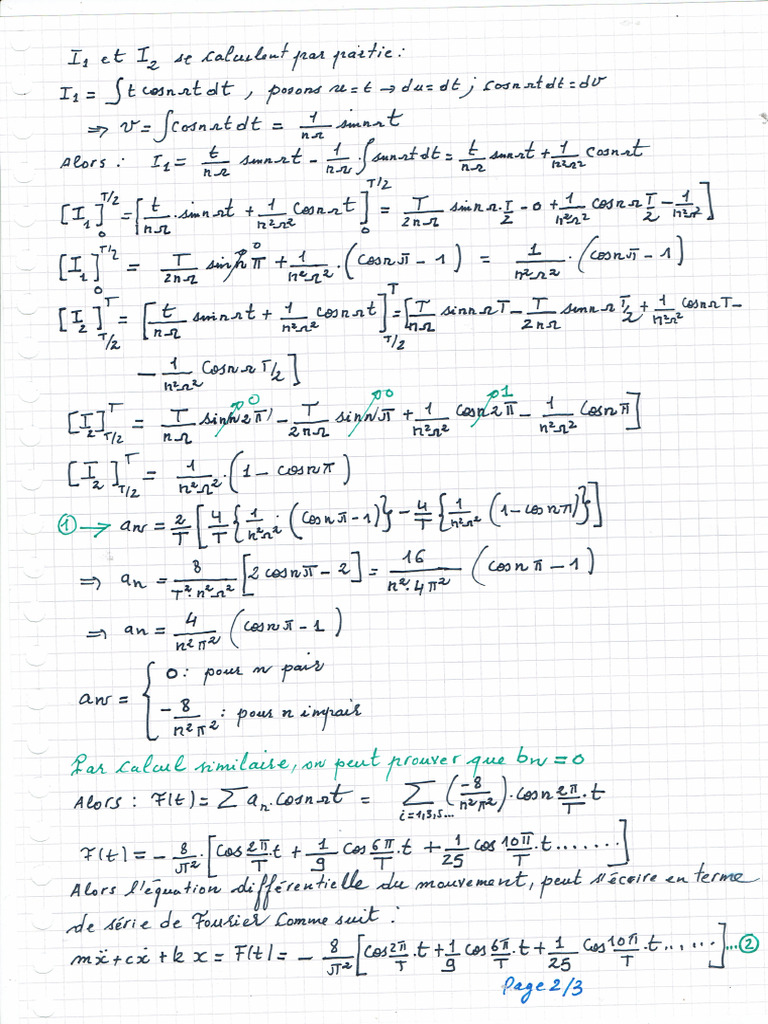 I₁ et I₂ se calculent par partie :
I₁ = ∫ t cosnΩt dt , posons u = t → du = dt ; cosnΩt dt = dv
⇒ v = ∫ cosnΩt dt = 1/nΩ sinnΩt
Alors : I₁ = t/nΩ sinnΩt - 1/nΩ . ∫ sinnΩt dt = t/nΩ sinnΩt + 1/n²Ω² cosnΩt
[I₁]₀^T/2 = [t/nΩ . sinnΩt + 1/n²Ω² cosnΩt]₀^T/2 = T/2nΩ sinnΩ.T/2 - 0 + 1/n²Ω² cosnΩ T/2 - 1/n²Ω²]
[I₁]₀^T/2 = T/2nΩ sinnπ 0 + 1/n²Ω² . (cosnπ - 1) = 1/n²Ω² . (cosnπ - 1)
[I₂]_T/2^T = [t/nΩ sinnΩt + 1/n²Ω² cosnΩt]_T/2^T = [T/nΩ sinnΩT - T/2nΩ sinnΩ T/2 + 1/n²Ω² cosnΩT -
- 1/n²Ω² cosnΩ T/2]
[I₂]_T/2^T = T/nΩ sinn2π 0 - T/2nΩ sinnπ 0 + 1/n²Ω² cosn2π 1 - 1/n²Ω² cosnπ]
[I₂]_T/2^T = 1/n²Ω² . (1 - cosnπ)
① → an = 2/T [4/T {1/n²Ω² . (cosnπ - 1)} - 4/T {1/n²Ω² (1 - cosnπ)}]
⇒ an = 8/T².n²Ω² [2 cosnπ - 2] = 16/n².4π² (cosnπ - 1)
⇒ an = 4/n²π² (cosnπ - 1)
an = { 0 : pour n pair
- 8/n²π² : pour n impair
Par calcul similaire, on peut prouver que bn = 0
Alors : F(t) = Σ an . cosnΩt = Σ i=1,3,5... (-8/n²π²) . cosn 2π/T . t
F(t) = - 8/π² . [cos 2π/T . t + 1/9 cos 6π/T . t + 1/25 cos 10π/T . t .......]
Alors l'équation différentielle du mouvement, peut s'écrire en terme
de série de Fourier comme suit :
mẍ + cẋ + k x = F(t) = - 8/π² [cos 2π/T . t + 1/9 cos 6π/T . t + 1/25 cos 10π/T . t .....] ... ②
Page 2/3